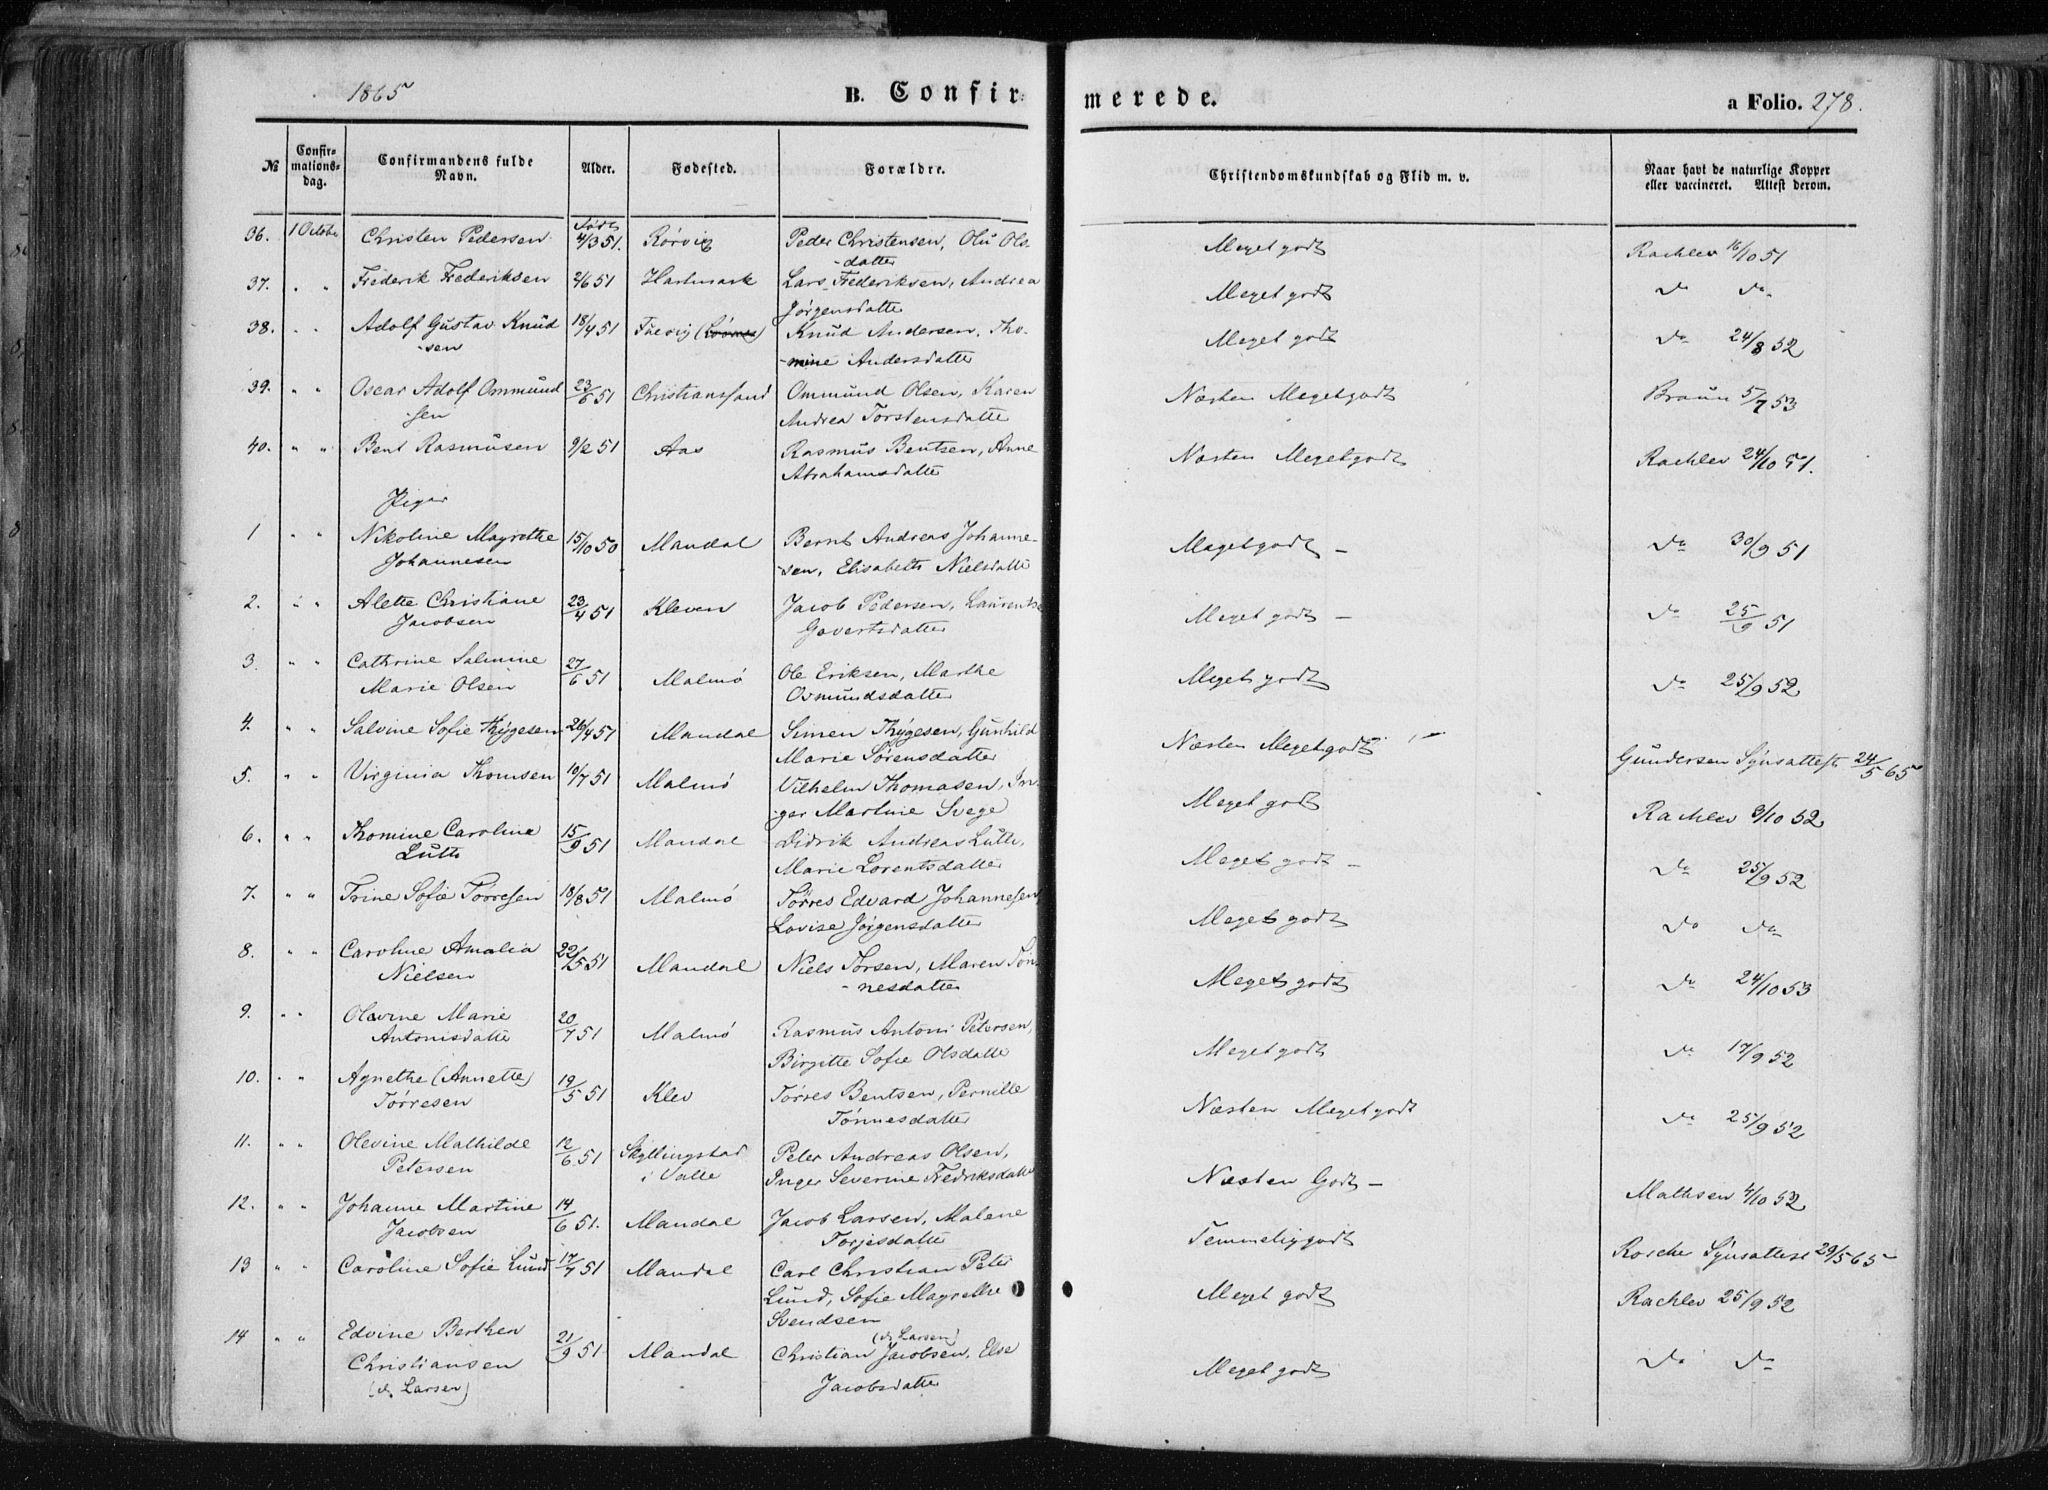 1865 B. Confirmerede. a Folio. 278.
№ Confirmationsdag. Confirmandens fulde Navn. Alder. Fødested. Forældre. Christendomskundskab og Flid m. v. Naar havt de naturlige Kopper eller vaccineret. Attest derom.
36. 1 Octobr Christen Pedersen født 4/3 51. Rørvig Peder Christensen, Ols- Meget godt Rachlev 16/10 51
datter
37. " " Frederik Frederiksen 2/6 51 Hartmark Lars Frederiksen, Andrea Meget godt Do Do
Jørgensdatter
38. " " Adolf Gustav Knud 18/4 51 Knud Andersen, Tho- Meget godt Do 24/8 52
-sen -mine Andersdatter
39. " " Oscar Adolf Ommund 23/6 51 Christianssand Ommund Olsen, Karen Næsten Megetgodt Braun 5/7 53
sen Andrea Torstensdatter
40. " " Bent Rasmusen 9/2 51 Aas Rasmus Bentsen, Anne Næsten Megetgodt Rachlev 24/10 51.
Abrahamsdatter
Piger
1 " " Nikoline Magrethe 15/10 50 Mandal Bernt Andreas Johanne- Megetgodt - Do 30/9 51
Johannesen -sen, Elisabeth Nielsdatter
2. " " Alette Christiane 23/4 51 Kleven Jacob Pedersen, Laurentse Meget godt - Do 25/9 51
Jacobsen Govertsdatter
3. " " Cathrine Salmine 27/6 51 Malmø Ole Eriksen, Marthe Meget godt Do 25/9 52
Marie Olsen Osmundsdatter
4. " " Salvine Sofie Thygesen 26/4 51 Mandal Simen Thygesen, Gunhild Næsten Megetgodt Gundersen Synsattest 24/5 65
Marie Sørensdatter
5. " " Virginia Thomsen 10/7 51 Malmø Vilhelm Thomasen, In- Meget godt Rachlev 3/10 52
-ger Martine Svege
6. " " Thomine Caroline 15/9 51 Mandal Didrik Andreas Lütte, Meget godt - Do 25/9 52
Lütte Marie Lorentsdatter
7. " " Trine Sofie Tørresen 18/8 51 Malmø Tørres Edvard Johannesen, Meget godt Do Do
Lovise Jørgensdatter
8. " " Caroline Amalia 22/5 51 Mandal Niels Torsen, Maren Tøn- Meget godt Do 24/10 53
Nielsen -nesdatter
9. " " Olevine Marie 20/7 51 Malmø Rasmus Antoni Petersen, Meget godt Do 17/9 52
Antonisdatter Birgitte Sofie Olsdatter
10. " " Agnethe (Annette) 19/5 51 Klev Tørres Bentsen, Pernille Næsten Meget godt Do 25/9 52
Tørresen Tønnesdatter
11. " " Olevine Mathilde 12/6 51 Skyllingstad Peter Andreas Olsen, Næsten Godt - Mathsen 4/10 52
Petersen i Valle Inger Severine Fredriksdatter
12. " " Johanne Martine 14/6 51. Mandal Jacob Larsen, Malene Temmelig godt Rosche Synsattest 29/5 65
Jacobsen Torjesdatter
13 " " Caroline Sofie Lund 17/7 51 Mandal Carl Christian Peter Meget godt Rachlev 25/9 52
Lund, Sofie Magrethe
Svendsen
14 " " Edvine Berthea 21/9 51 Mandal (d. Larsen) Christian Jacobsen, Else Meget godt Do Do
Christiansen Jacobsdatter
(d. Larsen)